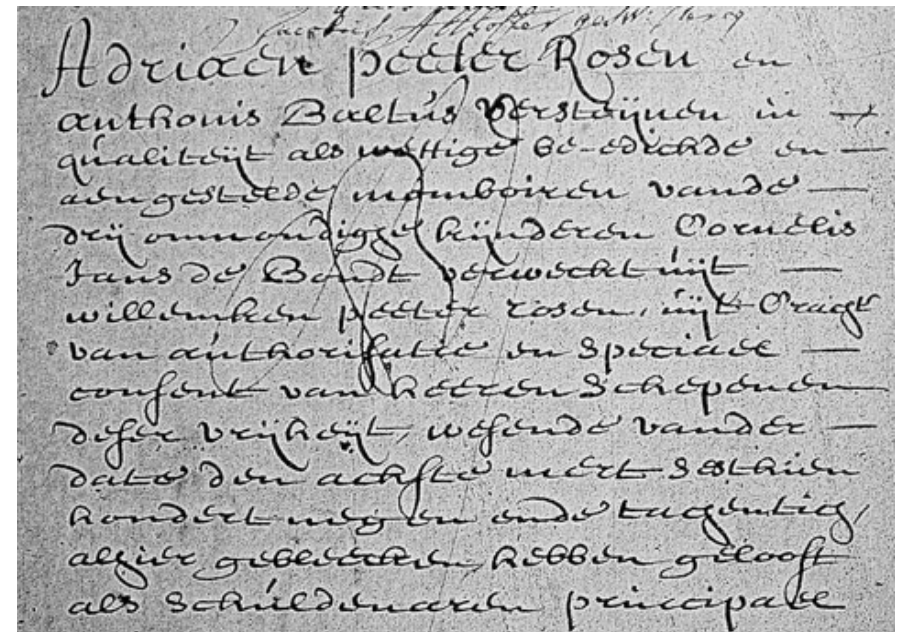 Adriaen peeter Rosen en
anthonis Baltus Versteijnen in
qualiteijt als wettige be-edichde en
aengestelde momboiren vande
drij onmondigge kijnderen Cornelis
Jans de Bondt verweckt uijt
willemken peeter rosen, uijt Cragt
van authorisatie en speciael
consent van heeren Schepenen
deser vrijheijt, wesende vander
date den achste mert Sesthien
hondert negen ende tagentig,
alhier gebleecken, hebben gelooft
als Schuldenaren principael